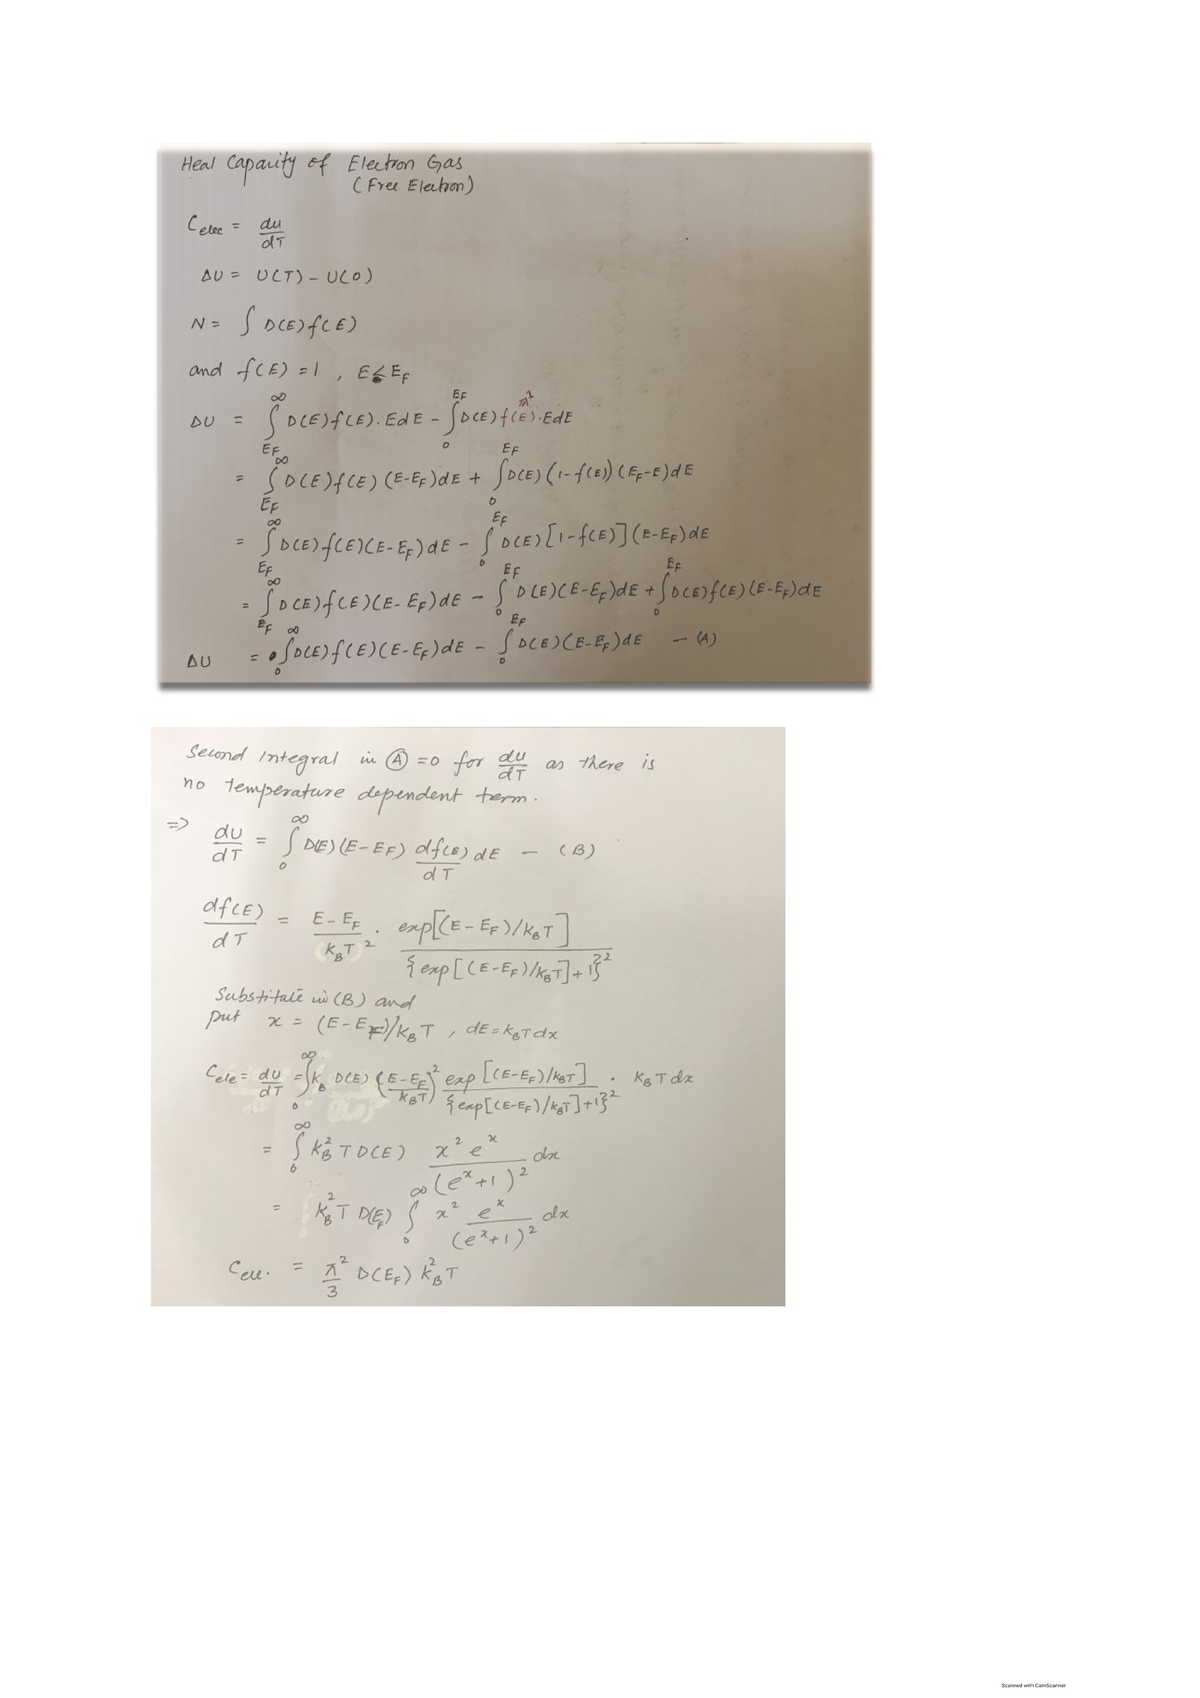 Heal Capacity of Electron Gas
(Free Electron)
C_elec = du/dT
ΔU = U(T) - U(0)
N = ∫ D(E) f(E)
and f(E) = 1 , E ≤ E_F
ΔU = ∫_{E_F}^{∞} D(E) f(E). E dE - ∫_0^{E_F} D(E) f(E). E dE
= ∫_{E_F}^{∞} D(E) f(E) (E-E_F) dE + ∫_0^{E_F} D(E) (1-f(E)) (E_F-E) dE
= ∫_{E_F}^{∞} D(E) f(E) (E-E_F) dE - ∫_0^{E_F} D(E) [1-f(E)] (E-E_F) dE
= ∫_{E_F}^{∞} D(E) f(E) (E-E_F) dE - ∫_0^{E_F} D(E) (E-E_F) dE + ∫_0^{E_F} D(E) f(E) (E-E_F) dE
ΔU = ∫_0^{∞} D(E) f(E) (E-E_F) dE - ∫_0^{E_F} D(E) (E-E_F) dE - (A)
Second Integral in Ⓐ = 0 for du/dT as there is
no temperature dependent term.
⇒ dU/dT = ∫_0^{∞} D(E) (E-E_F) df(E)/dT dE - (B)
df(E)/dT = (E-E_F)/(k_B T^2) . exp[(E-E_F)/k_B T] / {exp[(E-E_F)/k_B T]+1}^2
Substitute in (B) and
put x = (E-E_F)/k_B T , dE = k_B T dx
C_ele = du/dT = ∫_0^{∞} k_B D(E) ((E-E_F)/(k_B T))^2 exp[(E-E_F)/k_B T] / {exp[(E-E_F)/k_B T]+1}^2 . k_B T dx
= ∫_0^{∞} k_B^2 T D(E) x^2 e^x / (e^x+1)^2 dx
= k_B^2 T D(E_F) ∫_0^{∞} x^2 e^x / (e^x+1)^2 dx
C_ele. = π^2/3 D(E_F) k_B^2 T
Scanned with CamScanner